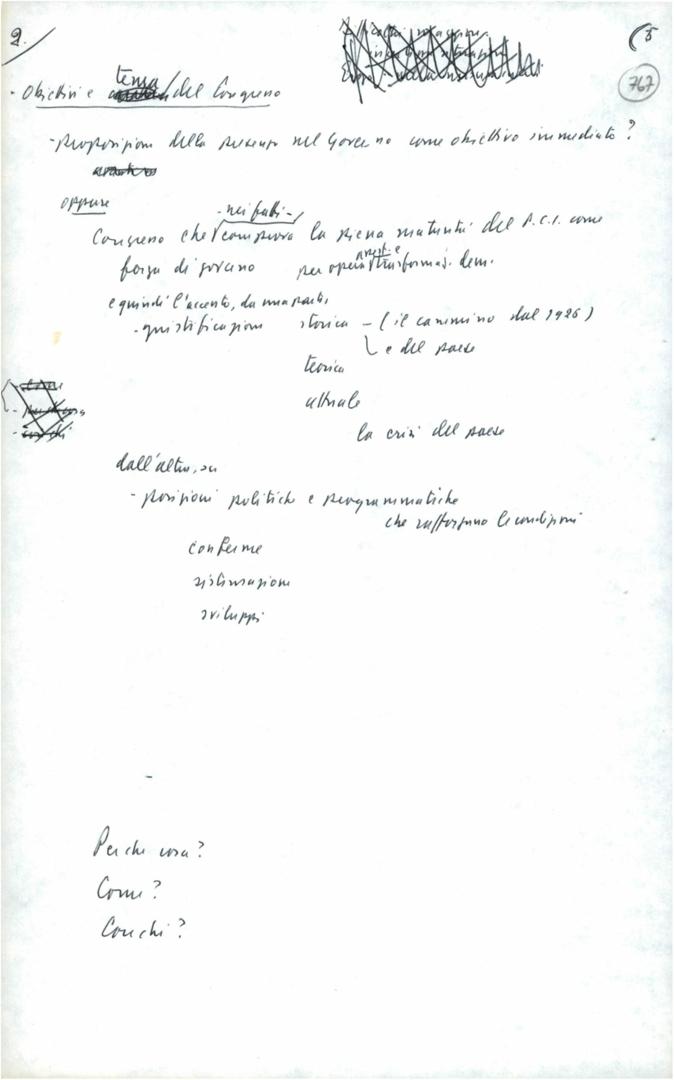 2.
5
767
- Obiettivi e tema del Congresso
- proposizione della presenza nel Governo come obiettivo immediato?
oppure
- nei fatti -
Congresso che comprova la piena maturità del P.C.I. come
forza di governo per opera trasformaz. dem.
e quindi l'accento, da una parte,
- giustificazione storica - (il cammino dal 1926)
e del paese
teorica
attuale
la crisi del paese
dall'altro, su
- posizioni politiche e programmatiche
che rafforzano le condizioni
conferme
sistemazione
sviluppi
-
Perché cosa?
Come?
Con chi?